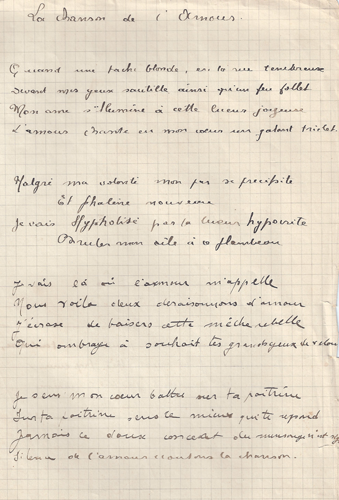 La chanson de l'Amour.
Quand une tache blonde, en la rue tenebreuse
Devant mes yeux sautille ainsi qu'un feu follet
Mon ame s'illumine à cette lueur joyeuse
L'amour chante en mon cœur un galant triolet.
Malgré ma volonté mon pas se precipite
Et phalène nouveau
Je vais Hypnotisé par ta lueur hypocrite
Bruler mon aile à ce flambeau
Je vais là où l'amour m'appelle
Nous voila deux deraisonnons d'amour
J'écrase de baisers cette mèche rebelle
Qui ombrage à souhait tes grands yeux de velours
Je sens mon cœur battre sur ta poitrine
Sur ta poitrine sens le mieux qui te repond
Jamais ce doux concert du mensonge n'est
Silence de l'amour ecoutons la chanson.